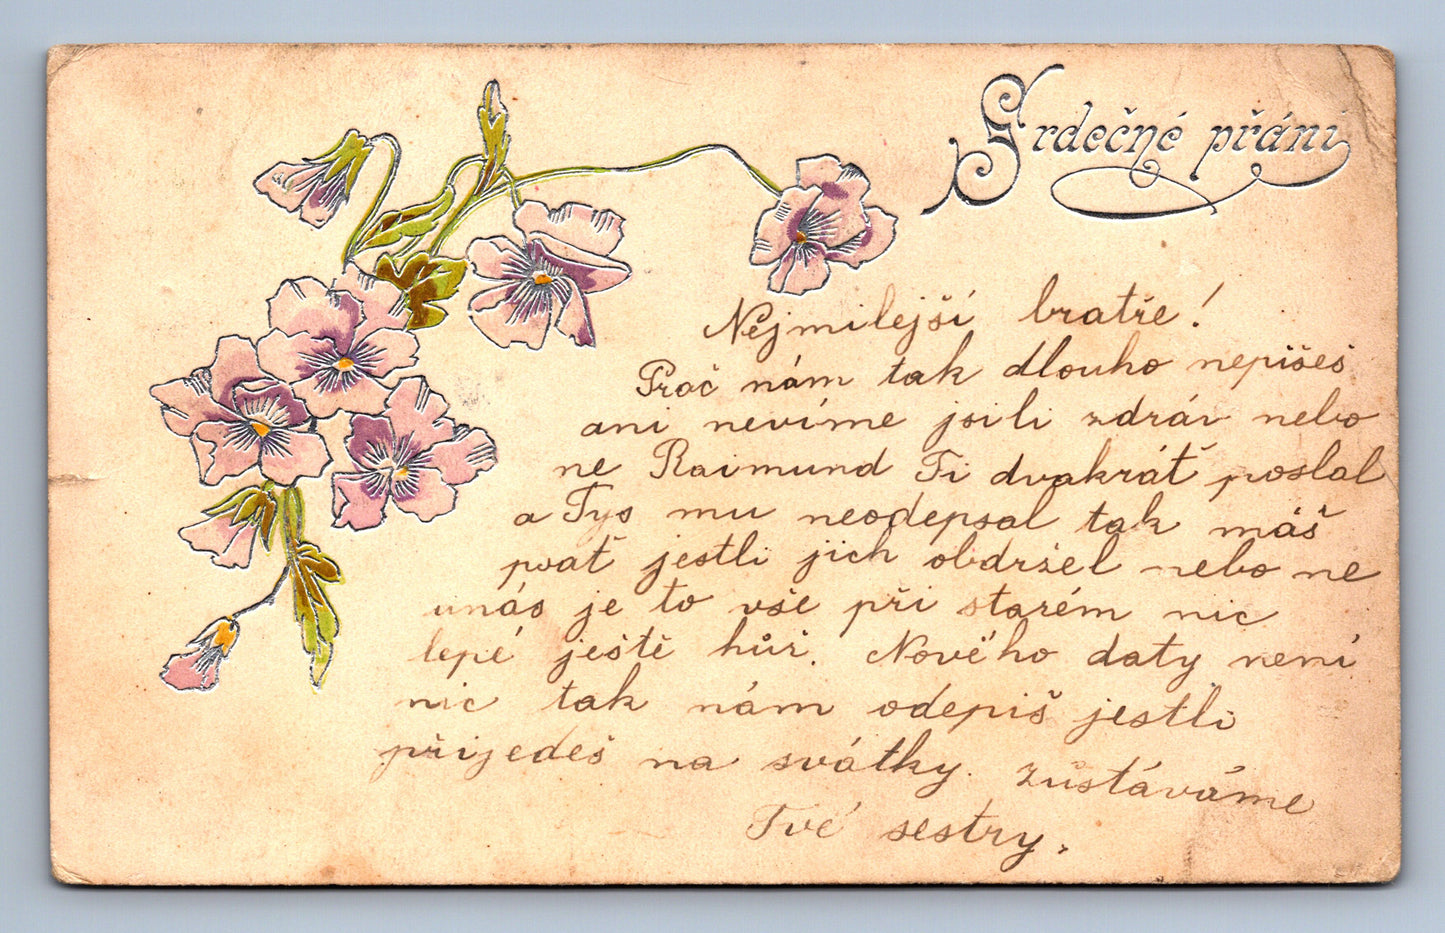 Srdečné přání
Nejmilejší bratře!
Proč nám tak dlouho nepíšeš
ani nevíme jsili zdráv nebo
ne Raimund Ti dvakrát poslal
a Tys mu neodepsal tak máš
psat jestli jich obdržel nebo ne
unás je to vše při starém nic
lepé ještě hůř. Nového daty není
nic tak nám odepiš jestli
přijedeš na svátky. zůstáváme
Tvé sestry.